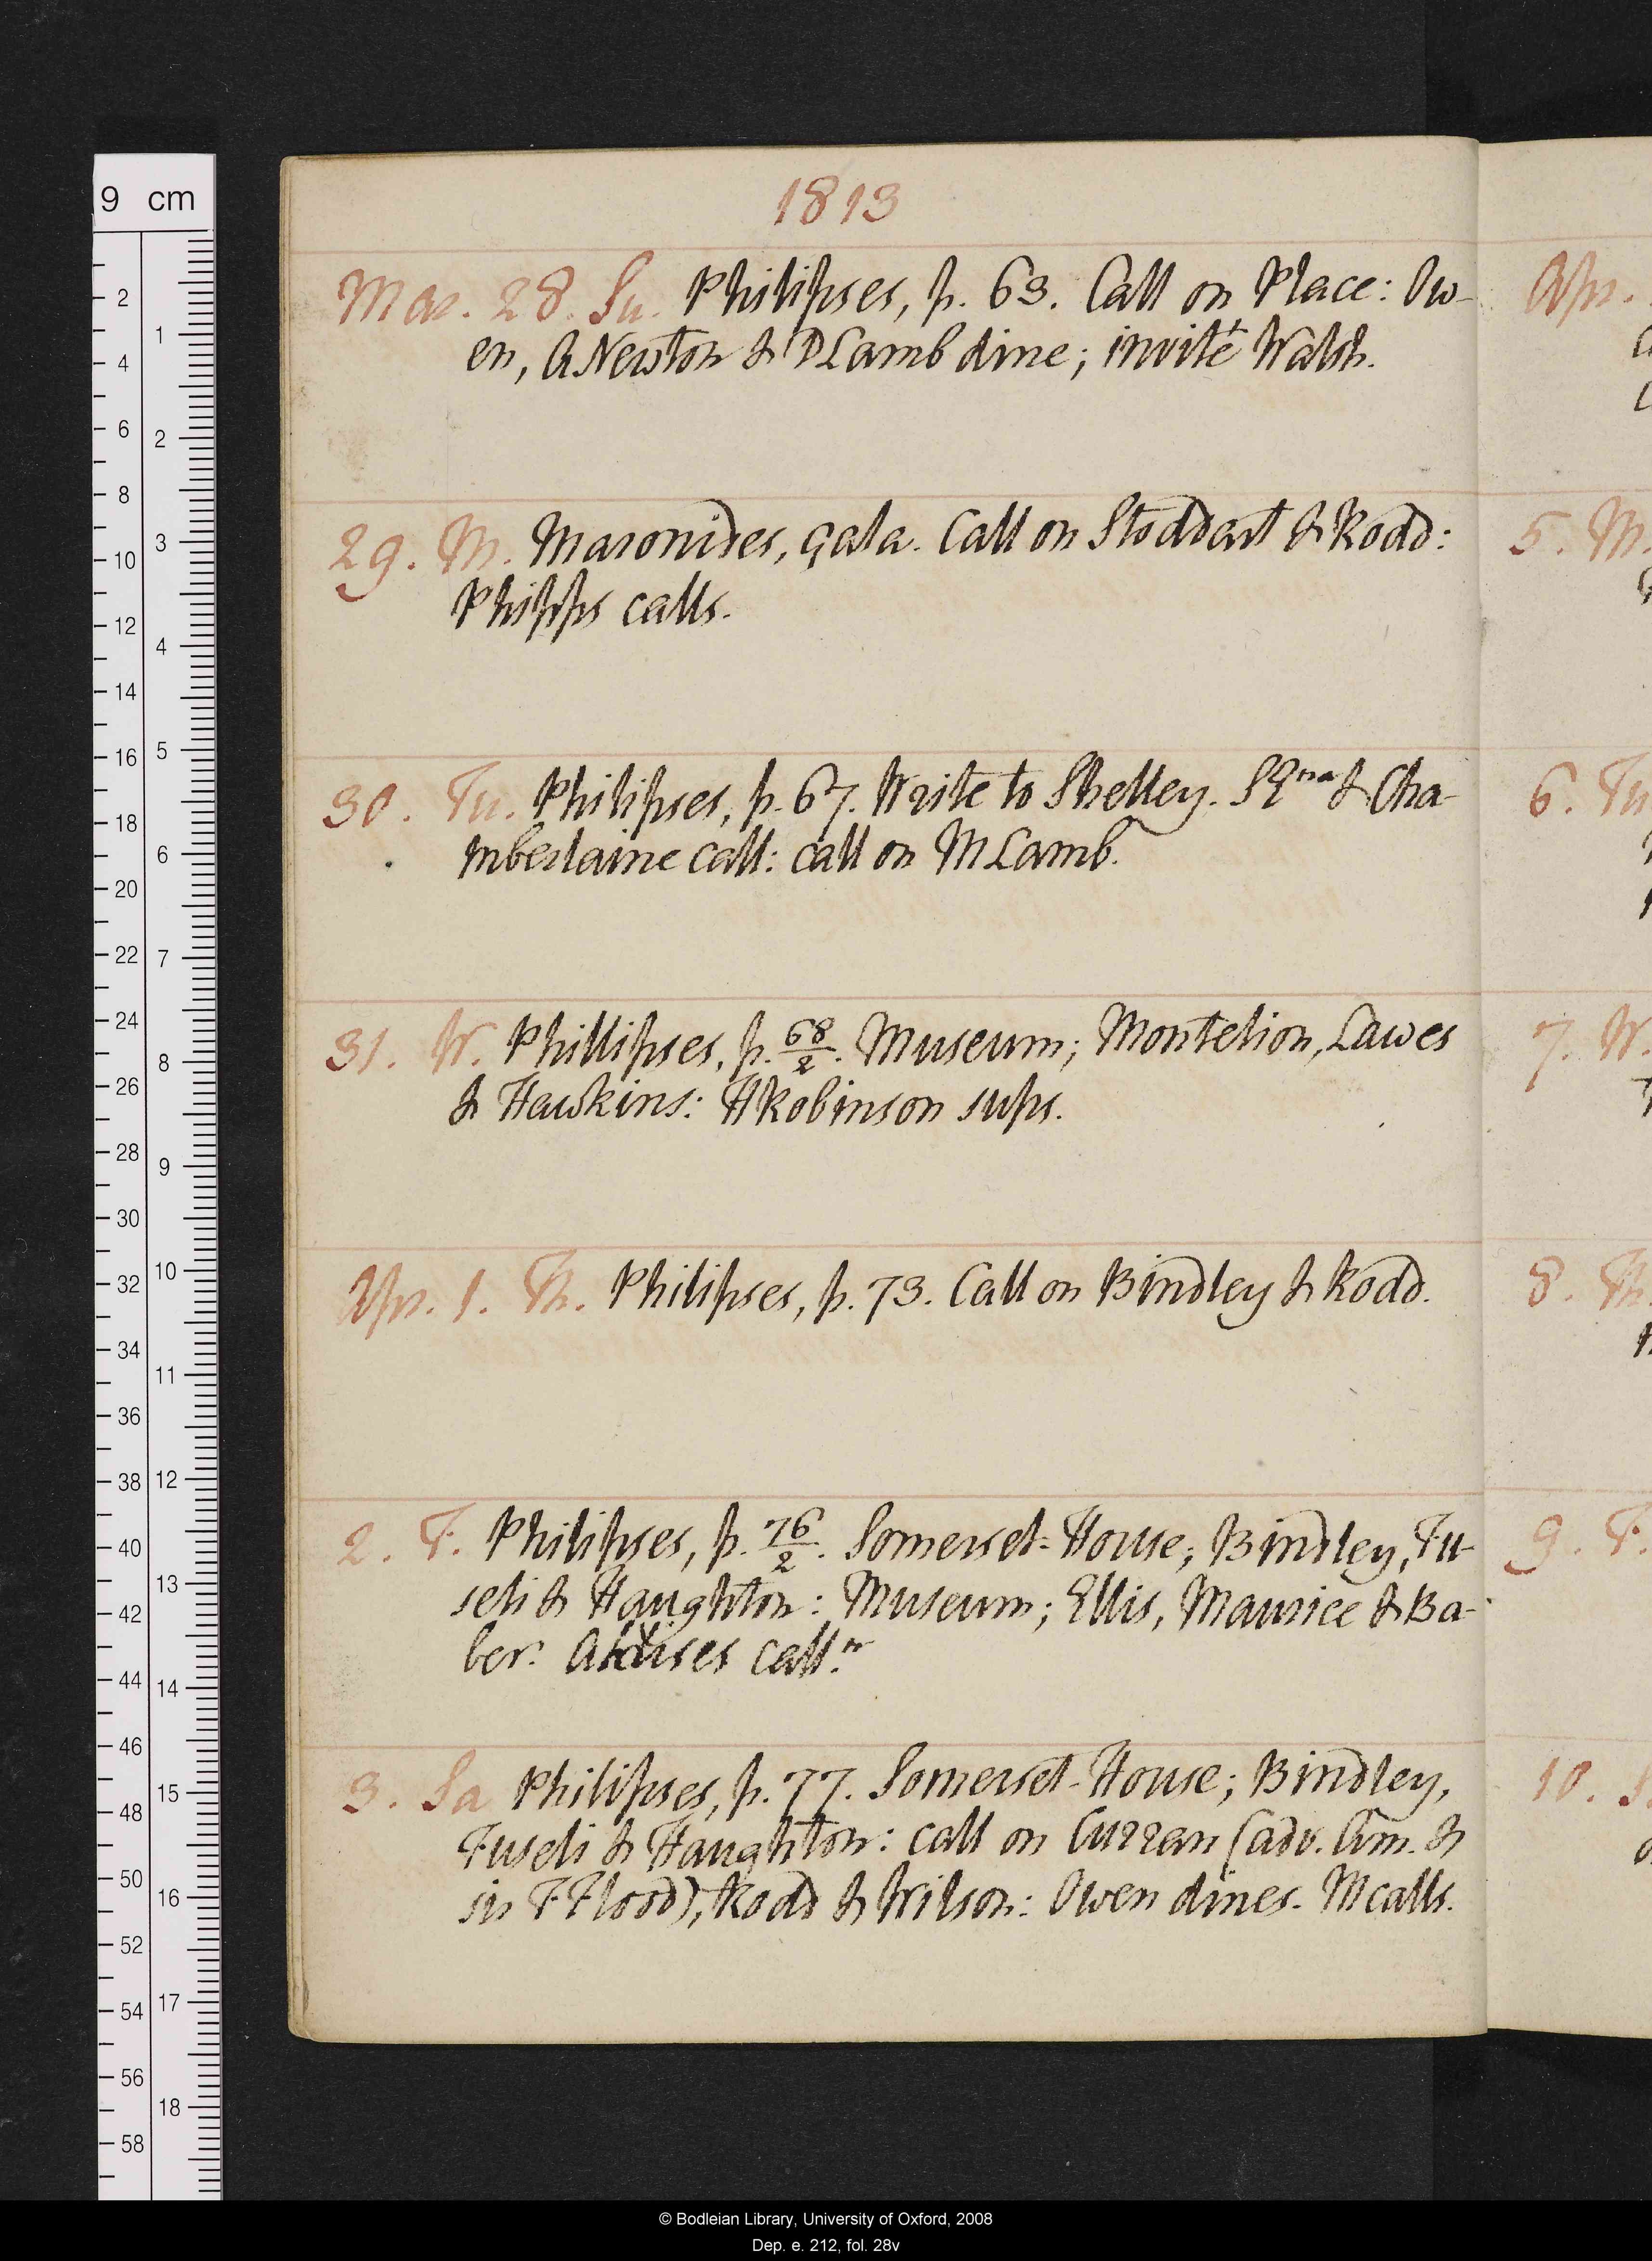 1813
Mar. 28. Su. Philipses, p. 63. Call on Place: Ow-
en, A Newton & D Lamb dine; invité Walsh.
29. M. Maronides, gala. Call on Stoddart & Rodd:
Phipps calls.
30. Tu. Philipses, p. 67. Write to Shelley. S Ena & Cha-
mberlaine call: call on M Lamb.
31. W. Phillipses, p. 68/2. Museum; Montelion, Lawes
& Hawkins: H Robinson sups.
Apr. 1. Th. Philipses, p. 73. Call on Bindley & Rodd.
2. F. Philipses, p. 76/2. Somerset-House; Bindley, Fu-
seli & Haughton: Museum; Ellis, Maurice & Ba-
ber: call.n
3. Sa Philipses, p. 77. Somerset-House; Bindley,
Fuseli & Haughton: call on Curran (adv. Am. &
sir F Flood), Rodd & Wilson: Owen dines. M calls.
Apr.
5. M.
6. Tu
7. W.
8. Th
9. F.
10. S
9 cm
2
4
6
8
10
12
14
16
18
20
22
24
26
28
30
32
34
36
38
40
42
44
46
48
50
52
54
56
58
1
2
3
4
5
6
7
8
9
10
11
12
13
14
15
16
17
18
© Bodleian Library, University of Oxford, 2008
Dep. e. 212, fol. 28v